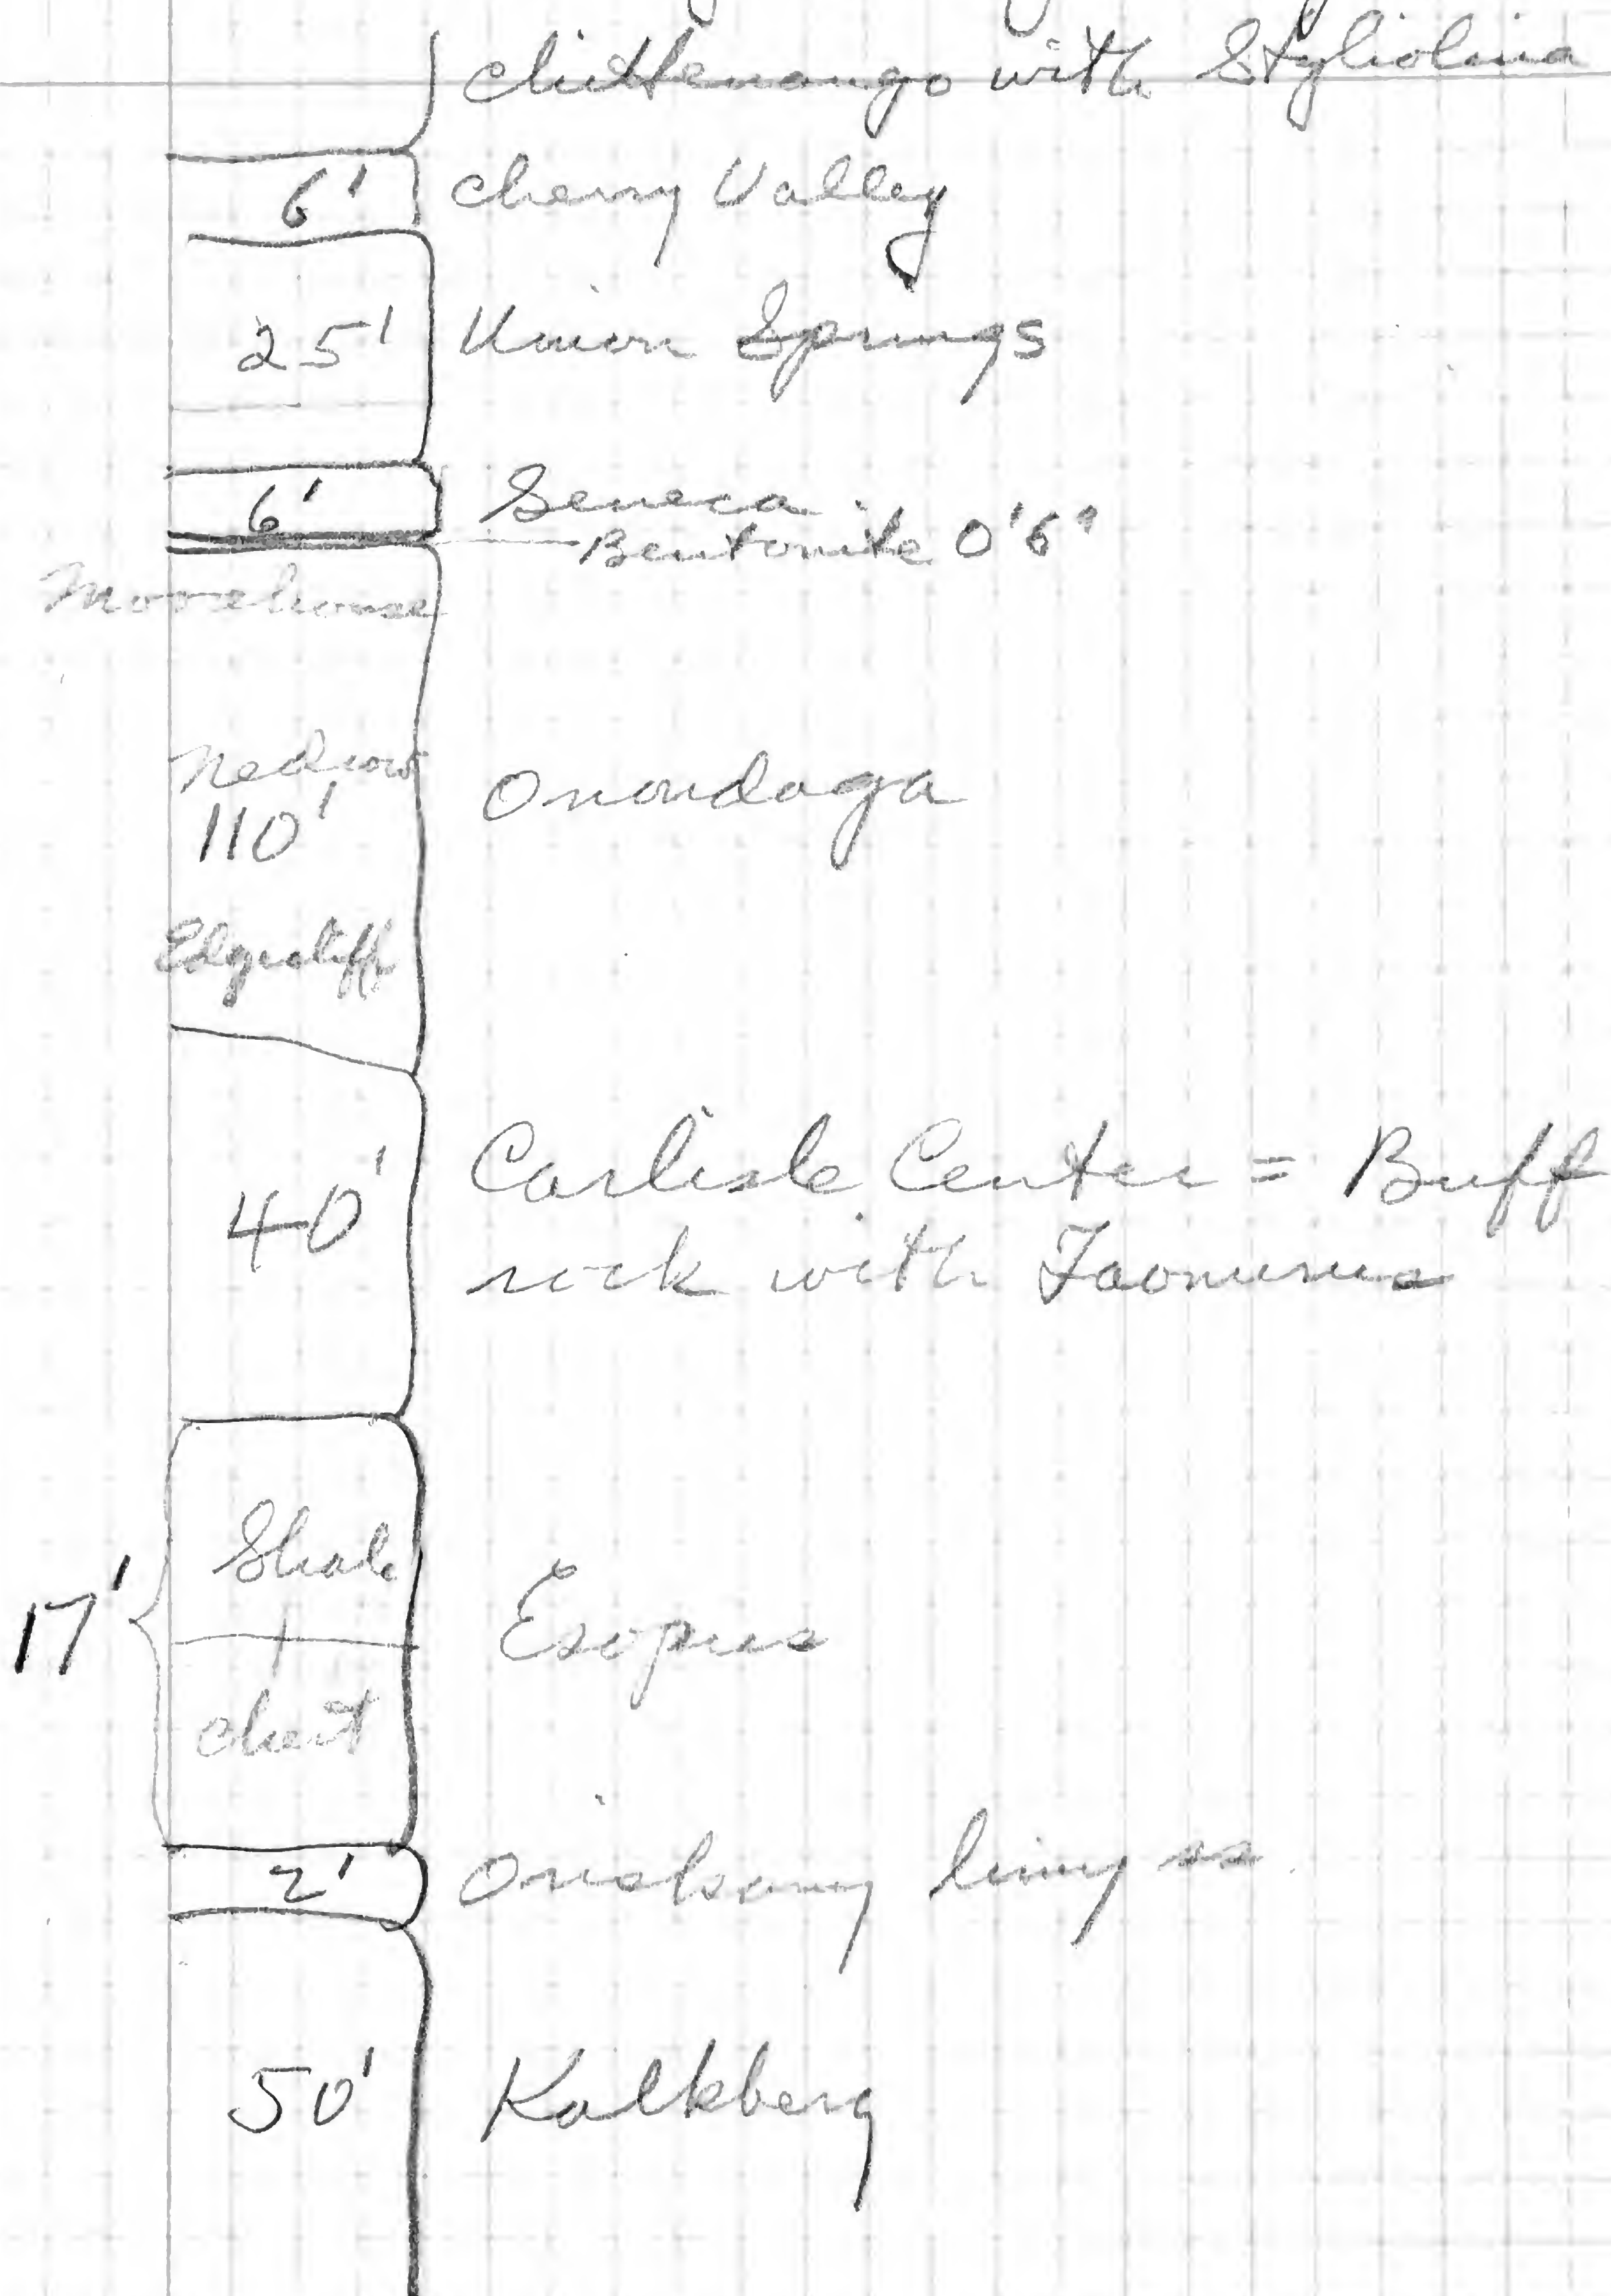 Chittenango with Styliolina
6' Cherry Valley
25' Union Springs
6' Seneca
Bentonite 0'6"
Moorehouse
Nedrow
110' Onondaga
Edgecliff
Carlisle Center = Buff
40' rock with Taonurus
Shale
17' Esopus
chert
2' Oriskany limy ss.
50' Kalkberg